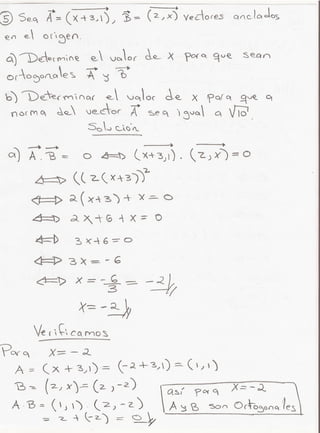 ⑤ Sea A⃗ = (x+3,1), B⃗ = (2,x) vectores anclados
en el origen.
a) Determine el valor de x para que sean
ortogonales A⃗ y B⃗
b) Determinar el valor de x para que a
norma del vector A⃗ sea igual a √10
Solución
a) A⃗ . B⃗ = 0 ⟺ (x+3,1) . (2,x) = 0
⟺ ((2(x+3))²
⟺ 2(x+3) + x = 0
⟺ 2x+6+x = 0
⟺ 3x+6 = 0
⟺ 3x = -6
⟺ x = -6/3 = -2
x = -2
Verificamos
Para x = -2
A = (x+3,1) = (-2+3,1) = (1,1)
B = (2,x) = (2,-2)
A.B = (1,1) . (2,-2)
= 2 + (-2) = 0
así para x = -2
A y B son Ortogonales